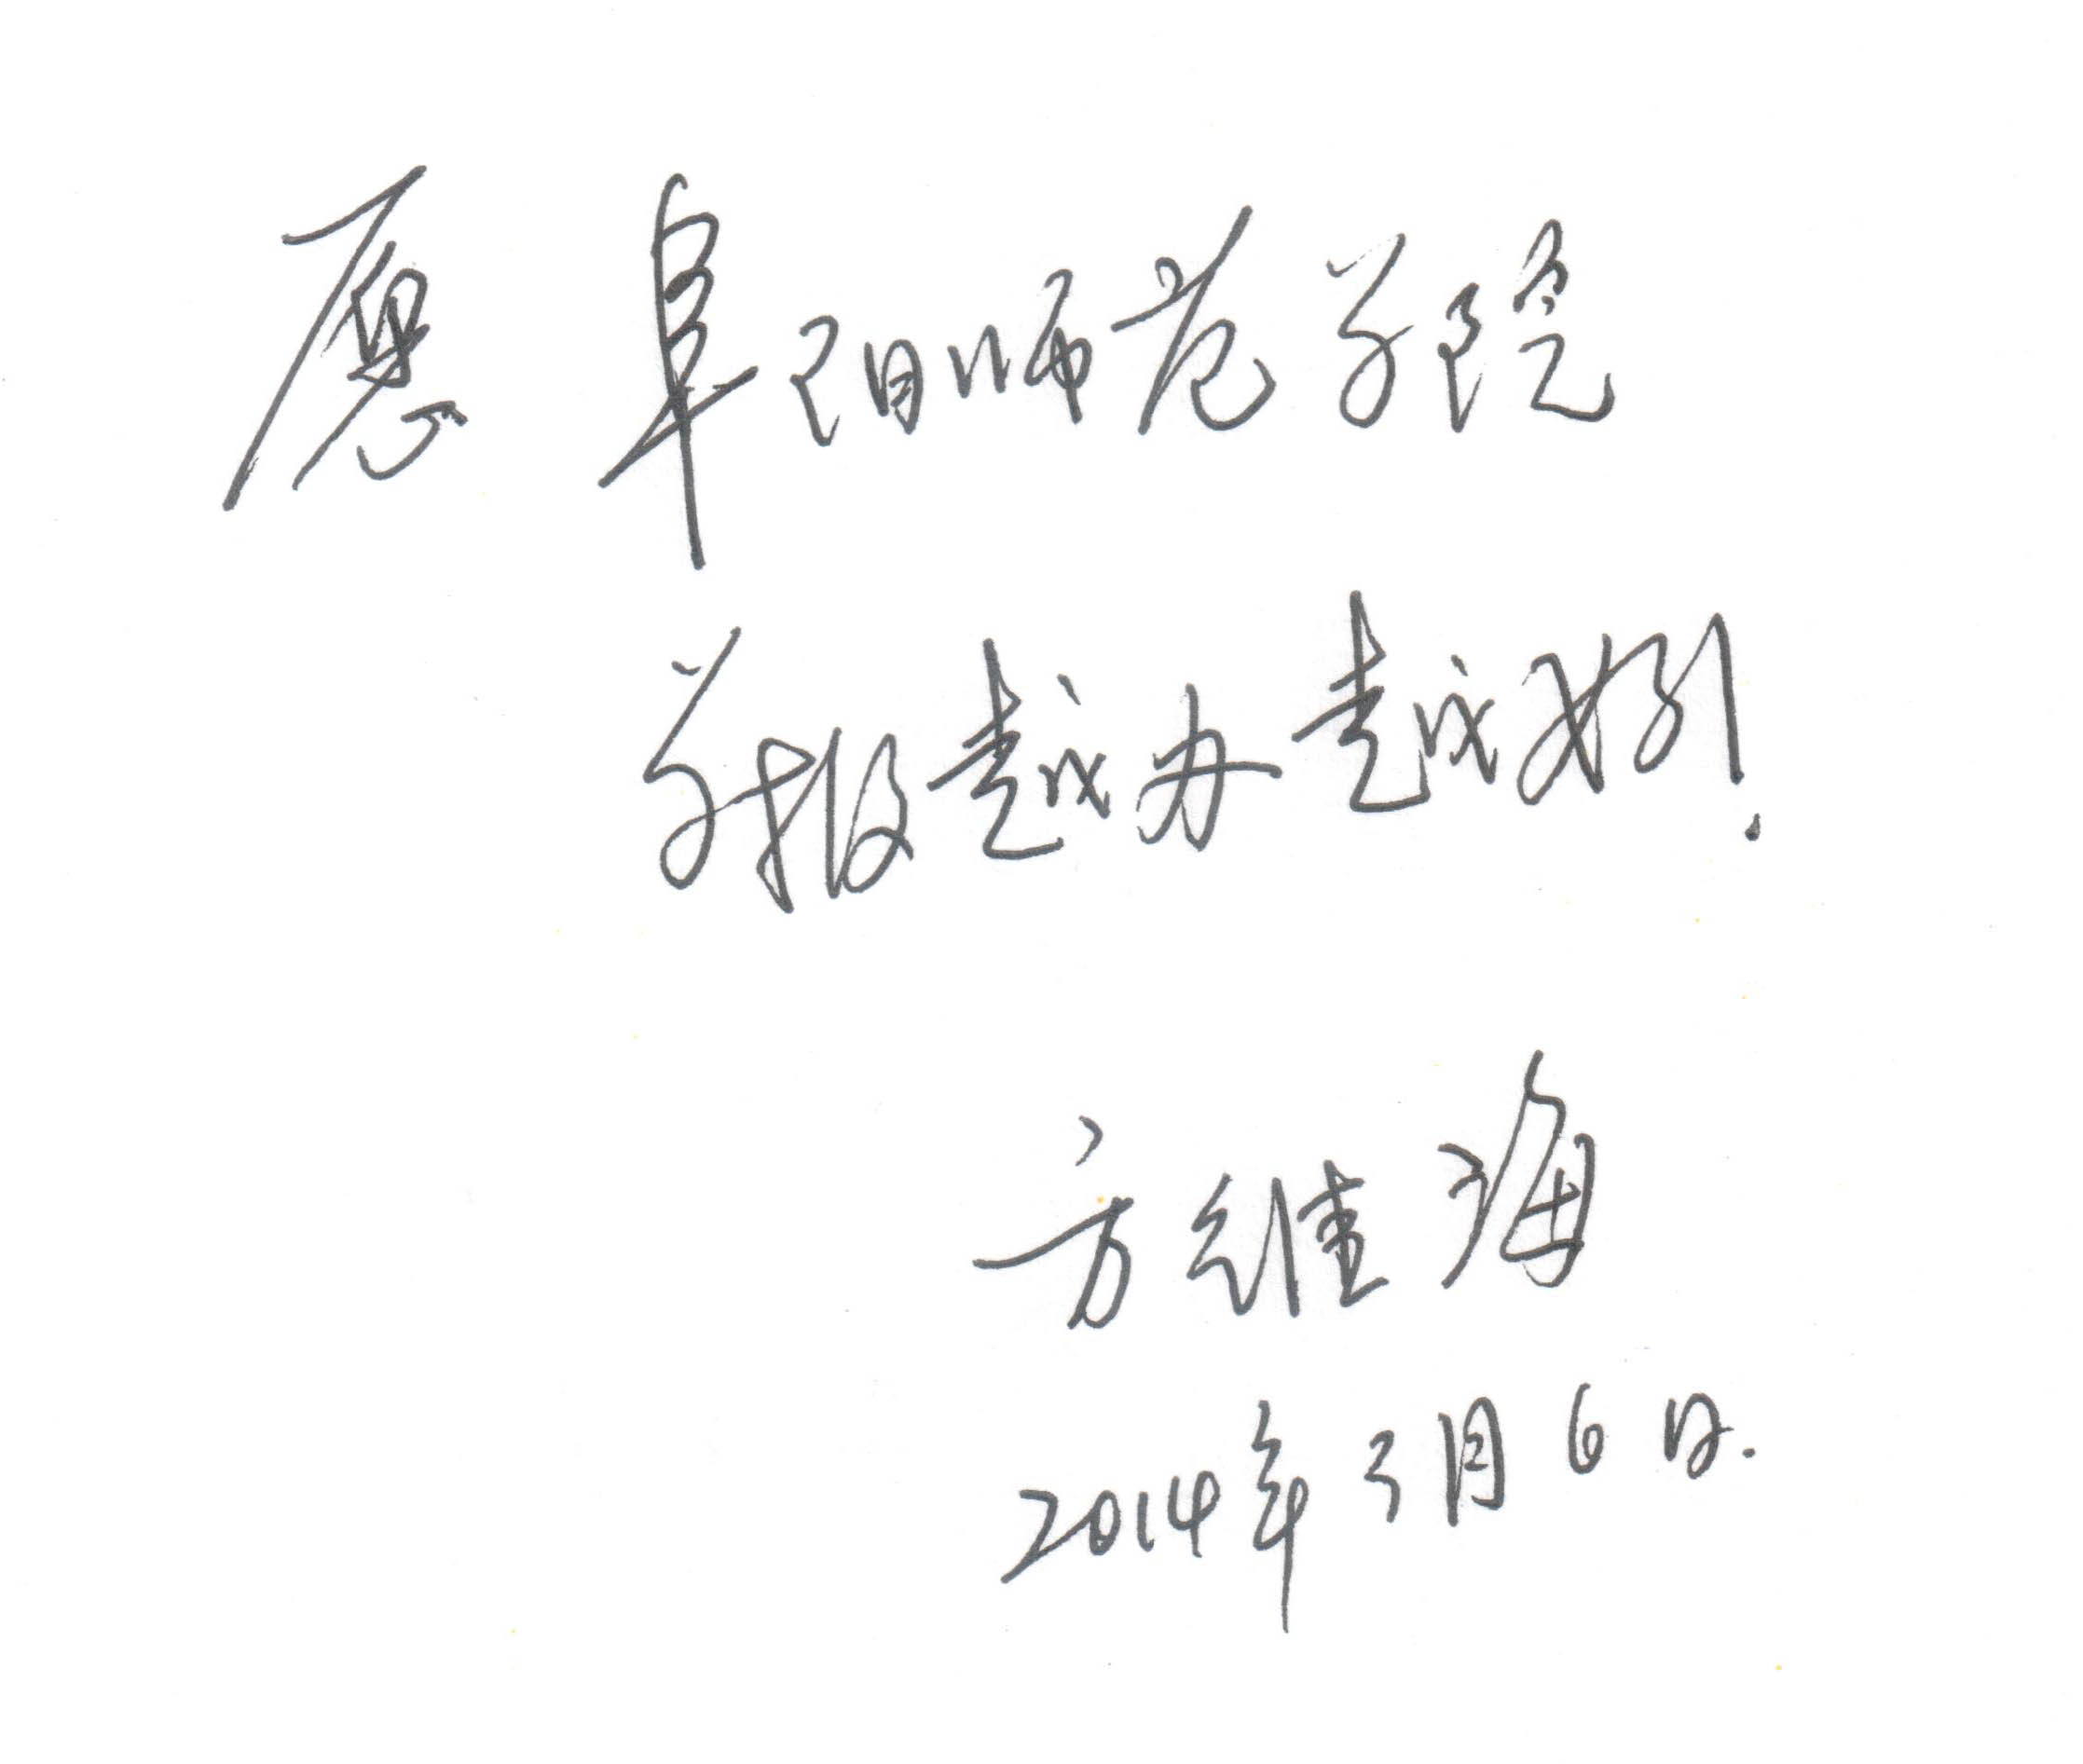 愿阜阳师范学院
学报越办越好!
方维海
2014年3月6日.